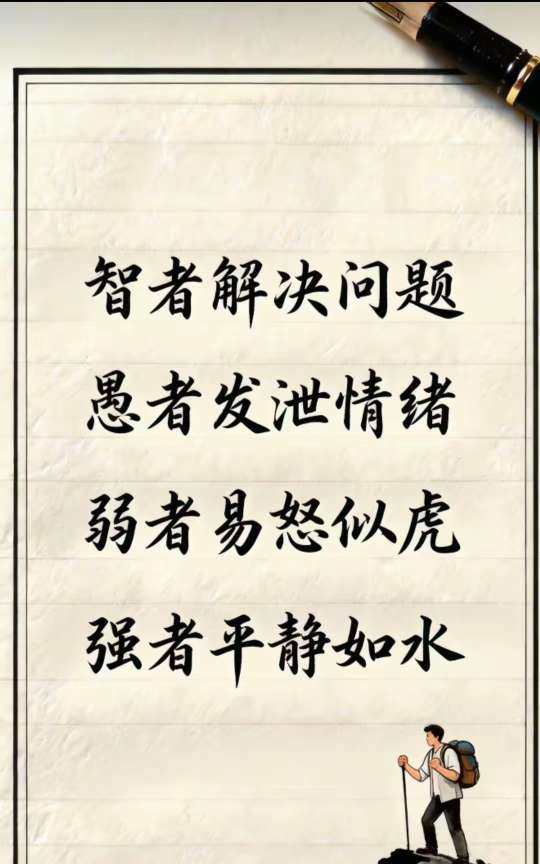 智者解决问题
愚者发泄情绪
弱者易怒似虎
强者平静如水